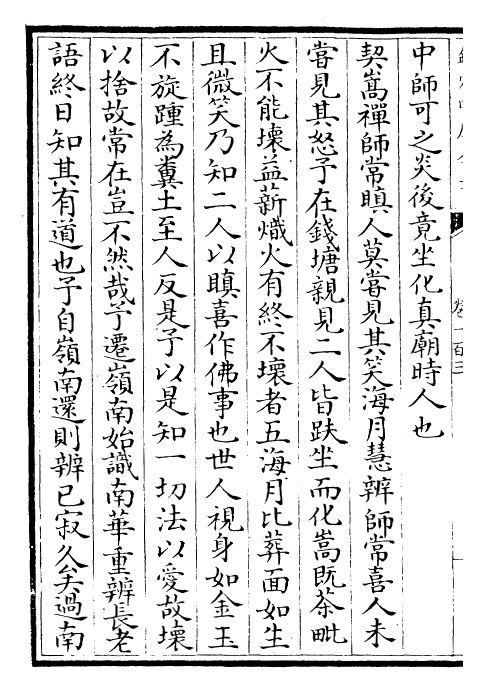 卷一百三
中師可之炎後竟坐化真廟時人也
契嵩禪師常瞋人莫嘗見其笑海月慧辨師常喜人未
嘗見其怒予在錢塘親見二人皆趺坐而化嵩既荼毗
火不能壞益薪熾火有終不壞者五海月比葬面如生
且微笑乃知二人以瞋喜作佛事也世人視身如金玉
不旋踵為糞土至人反是予以是知一切法以愛故壞
以捨故常在豈不然哉予遷嶺南始識南華重辨長老
語終日知其有道也予自嶺南還則辨已寂久矣過南